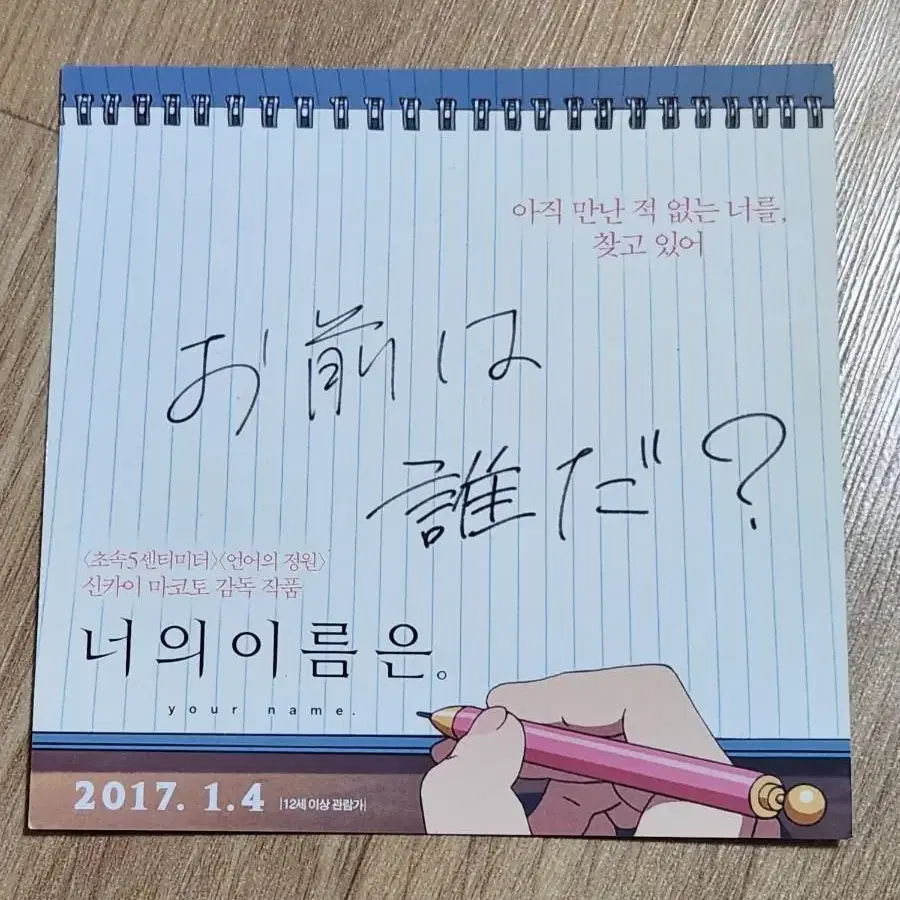 아직 만난 적 없는 너를,
찾고 있어
お前は
誰だ?
〈초속5센티미터〉〈언어의 정원〉
신카이 마코토 감독 작품
너의 이름은。
your name.
2017. 1.4 |12세 이상 관람가|